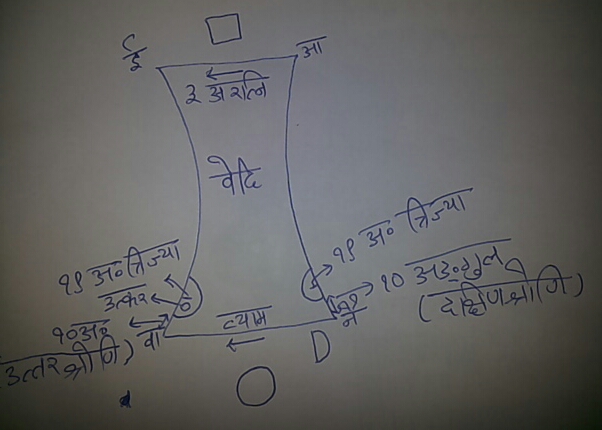 ई
आ
३ अरत्नि
वेदि
१९ अं० त्रिज्या
उत्कर
१० अं०
वा
उत्तर श्रोणि)
व्याम
१९ अं० त्रिज्या
१० अङ्गुल
(दक्षिणश्रोणि)
नै
D